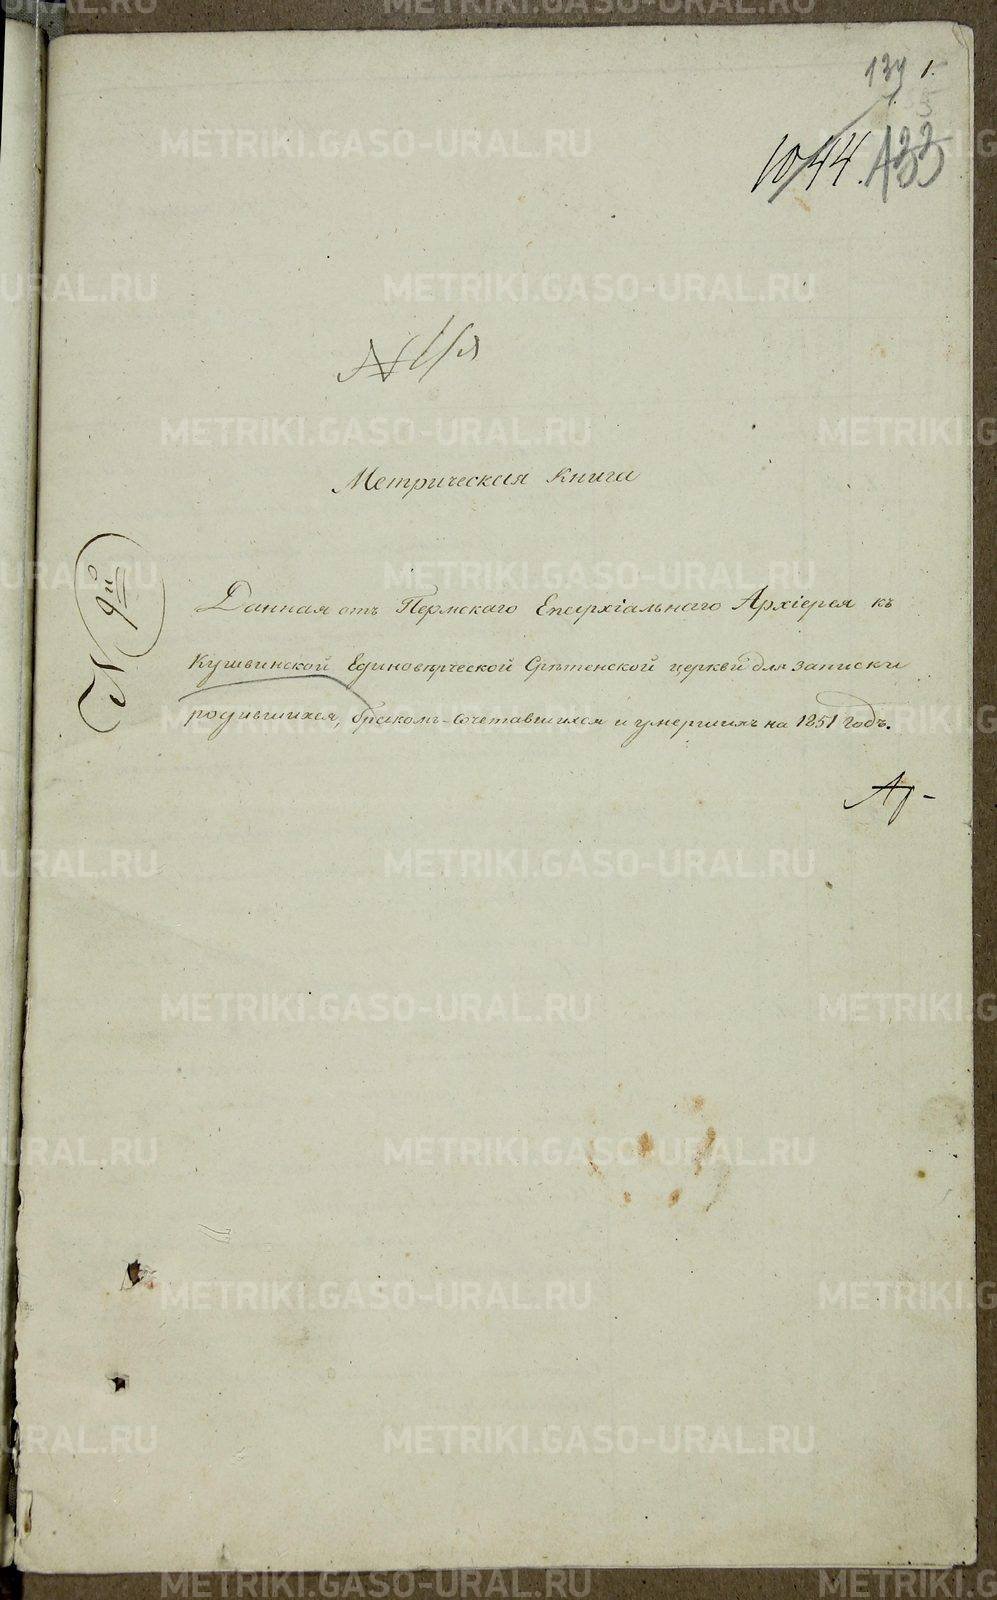 139 1.
10/44. А35
№ 11й
Метрическая Книга
№ 9й
Данная отъ Пермскаго Епархіальнаго Архіерея къ
Кушвинской Единовѣрческой Срѣтенской церкви для записки
родившихся, бракомъ-сочетавшихся и умершихъ на 1851 годъ.
METRIKI.GASO-URAL.RU